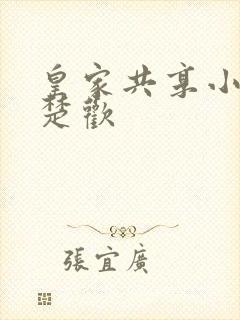 皇家共享小
楚歡
張宜廣